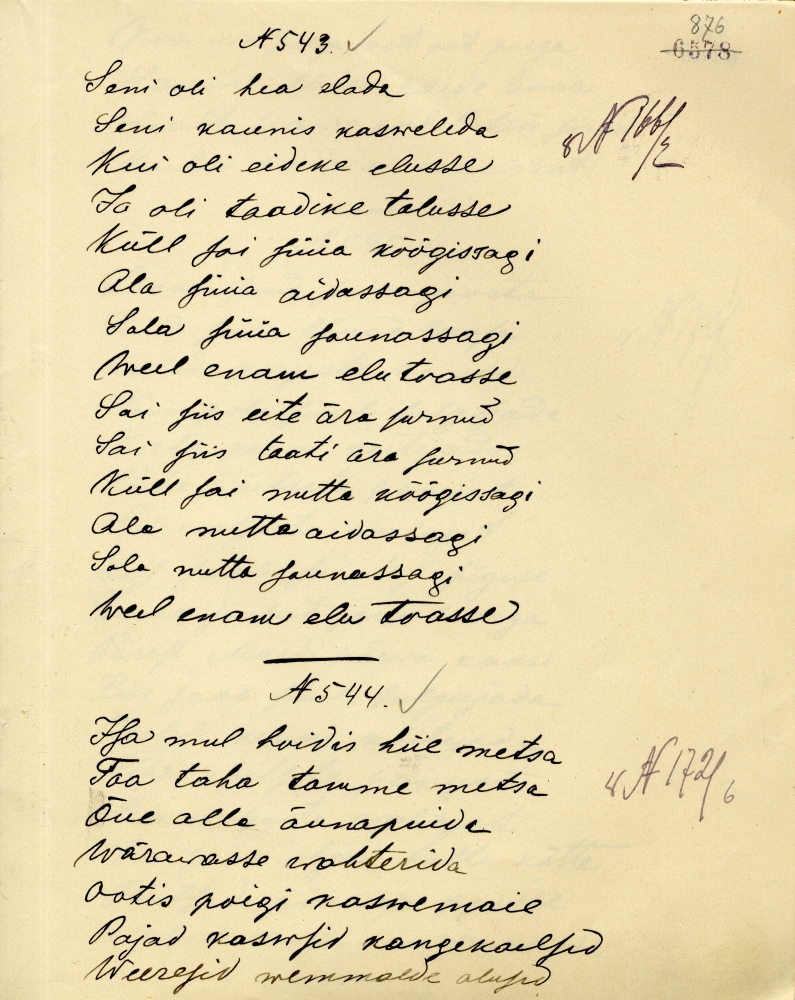 876
6578
N 543.
Seni oli hea elada
Seni kaunis kasweleda
Kui oli eideke elusse
Ja oli taadike talusse
Küll sai süüa köögissagi
Ala süüa aidassagi
Sala süüa saunassagi
Weel enam elu toasse
Sai siis eite ära surnud
Sai siis taati ära surnud
Küll sai nutta köögissagi
Ala nutta aidassagi
Sala nutta saunassagi
Weel enam elu toasse
N 544.
Isa mul hoidis hiie metsa
Taa taha tamme metsa
Õue alla äunapuida
Wärawasse wahterida
Ootis poigi kaswemaie
Pojad kaswsid kangekaelsed
Weeresid wemmalde alused